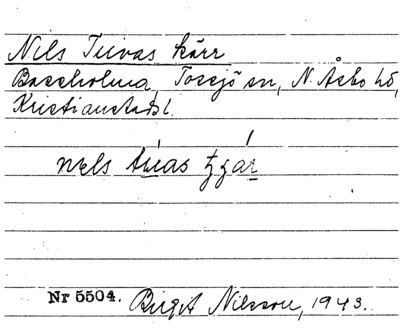 Nils Tuvas kärr
Bassholma, Tossjö sn, N. Åsbo hd,
Kristianstads l.
Nr 5504. Birgit Nilsson, 1943.